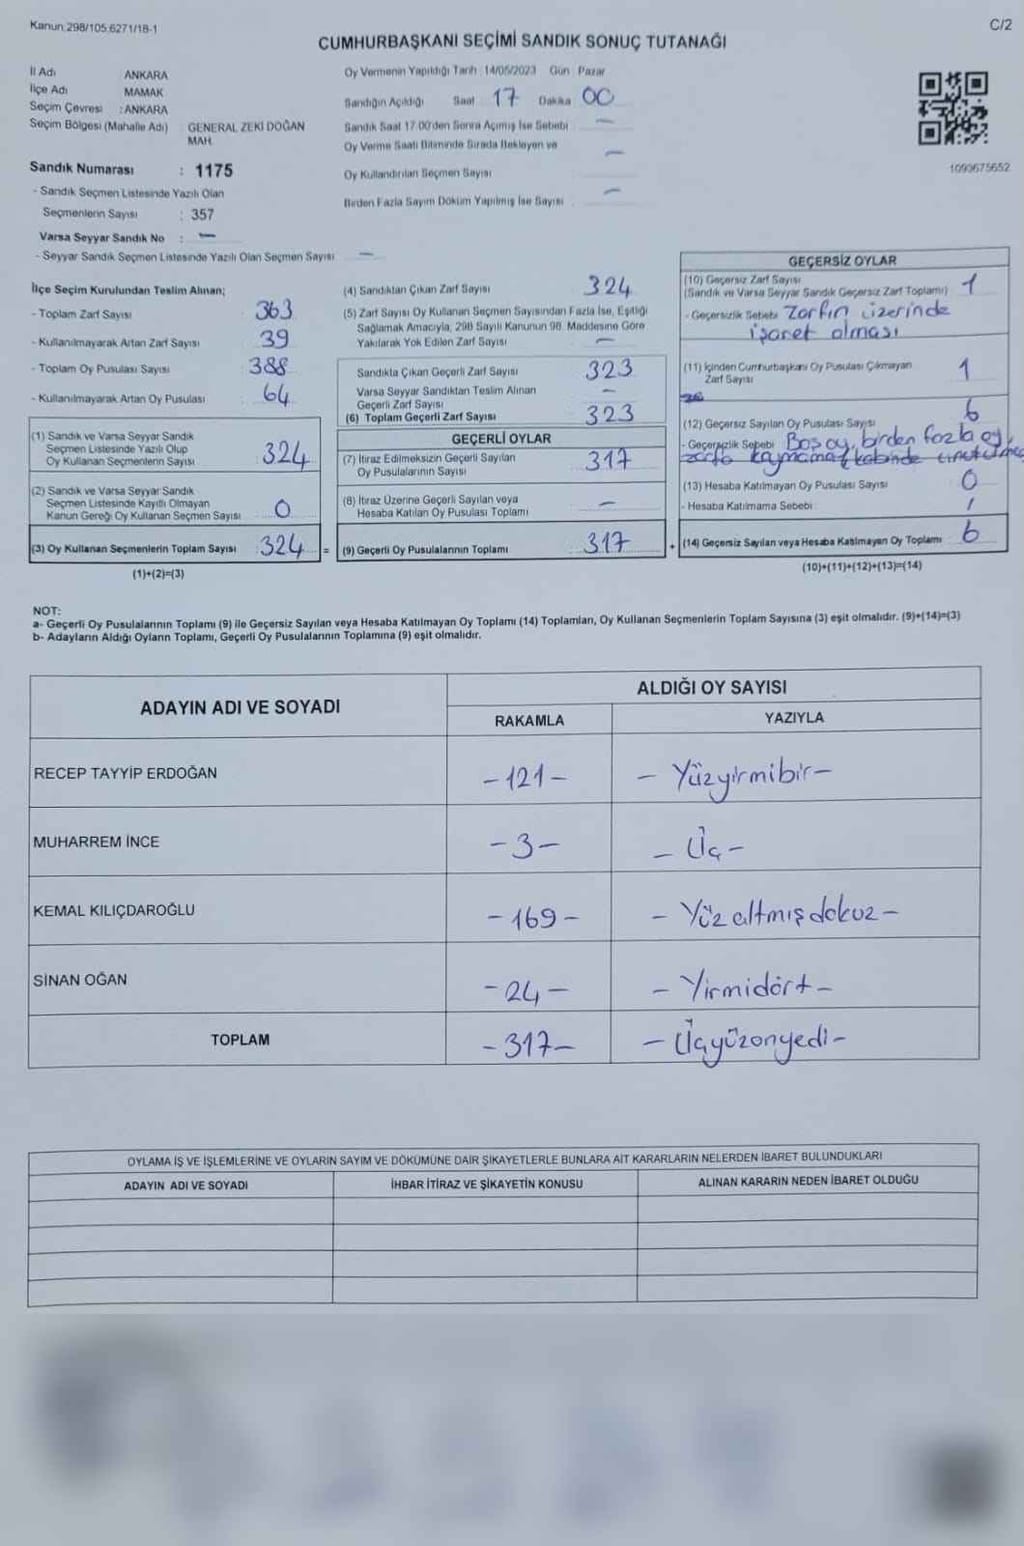 Kanun 298/105,6271/18-1
C/2
CUMHURBAŞKANI SEÇİMİ SANDIK SONUÇ TUTANAĞI
İl Adı ANKARA
İlçe Adı MAMAK
Seçim Çevresi : ANKARA
Seçim Bölgesi (Mahalle Adı) GENERAL ZEKİ DOĞAN
MAH.
Sandık Numarası : 1175
- Sandık Seçmen Listesinde Yazılı Olan
Seçmenlerin Sayısı : 357
Varsa Seyyar Sandık No : -
- Seyyar Sandık Seçmen Listesinde Yazılı Olan Seçmen Sayısı -
Oy Vermenin Yapıldığı Tarih 14/05/2023 Gün Pazar
Sandığın Açıldığı Saat 17 Dakika 00
Sandık Saat 17.00'den Sonra Açılmış İse Sebebi -
Oy Verme Saati Bitiminde Sırada Bekleyen ve -
Oy Kullandırılan Seçmen Sayısı
Birden Fazla Sayım Döküm Yapılmış İse Sayısı -
1090675652
İlçe Seçim Kurulundan Teslim Alınan;
- Toplam Zarf Sayısı 363
- Kullanılmayarak Artan Zarf Sayısı 39
- Toplam Oy Pusulası Sayısı 388
- Kullanılmayarak Artan Oy Pusulası 64
(1) Sandık ve Varsa Seyyar Sandık
Seçmen Listesinde Yazılı Olup
Oy Kullanan Seçmenlerin Sayısı 324
(2) Sandık ve Varsa Seyyar Sandık
Seçmen Listesinde Kayıtlı Olmayan
Kanun Gereği Oy Kullanan Seçmen Sayısı 0
(3) Oy Kullanan Seçmenlerin Toplam Sayısı 324 =
(1)+(2)=(3)
(4) Sandıktan Çıkan Zarf Sayısı 324
(5) Zarf Sayısı Oy Kullanan Seçmen Sayısından Fazla İse, Eşitliği
Sağlamak Amacıyla, 298 Sayılı Kanunun 98. Maddesine Göre
Yakılarak Yok Edilen Zarf Sayısı -
Sandıkta Çıkan Geçerli Zarf Sayısı 323
Varsa Seyyar Sandıktan Teslim Alınan
Geçerli Zarf Sayısı -
(6) Toplam Geçerli Zarf Sayısı 323
GEÇERLİ OYLAR
(7) İtiraz Edilmeksizin Geçerli Sayılan
Oy Pusulalarının Sayısı 317
(8) İtiraz Üzerine Geçerli Sayılan veya
Hesaba Katılan Oy Pusulası Toplamı -
(9) Geçerli Oy Pusulalarının Toplamı 317 +
GEÇERSİZ OYLAR
(10) Geçersiz Zarf Sayısı
(Sandık ve Varsa Seyyar Sandık Geçersiz Zarf Toplamı) 1
- Geçersizlik Sebebi Zarfın üzerinde
işaret olması
(11) İçinden Cumhurbaşkanı Oy Pusulası Çıkmayan
Zarf Sayısı 1
(12) Geçersiz Sayılan Oy Pusulası Sayısı 6
- Geçersizlik Sebebi Boş oy, birden fazla oy,
zarfa koymama, kabinde
(13) Hesaba Katılmayan Oy Pusulası Sayısı 0
- Hesaba Katılmama Sebebi /
(14) Geçersiz Sayılan veya Hesaba Katılmayan Oy Toplamı 6
(10)+(11)+(12)+(13)=(14)
NOT:
a- Geçerli Oy Pusulalarının Toplamı (9) ile Geçersiz Sayılan veya Hesaba Katılmayan Oy Toplamı (14) Toplamları, Oy Kullanan Seçmenlerin Toplam Sayısına (3) eşit olmalıdır. (9)+(14)=(3)
b- Adayların Aldığı Oyların Toplamı, Geçerli Oy Pusulalarının Toplamına (9) eşit olmalıdır.
ADAYIN ADI VE SOYADI
ALDIĞI OY SAYISI
RAKAMLA YAZIYLA
RECEP TAYYİP ERDOĞAN -121- - Yüzyirmibir-
MUHARREM İNCE -3- - Üç-
KEMAL KILIÇDAROĞLU -169- - Yüz altmış dokuz-
SİNAN OĞAN -24- - Yirmidört-
TOPLAM -317- - Üçyüzonyedi-
OYLAMA İŞ VE İŞLEMLERİNE VE OYLARIN SAYIM VE DÖKÜMÜNE DAİR ŞİKAYETLERLE BUNLARA AİT KARARLARIN NELERDEN İBARET BULUNDUKLARI
ADAYIN ADI VE SOYADI İHBAR İTİRAZ VE ŞİKAYETİN KONUSU ALINAN KARARIN NEDEN İBARET OLDUĞU